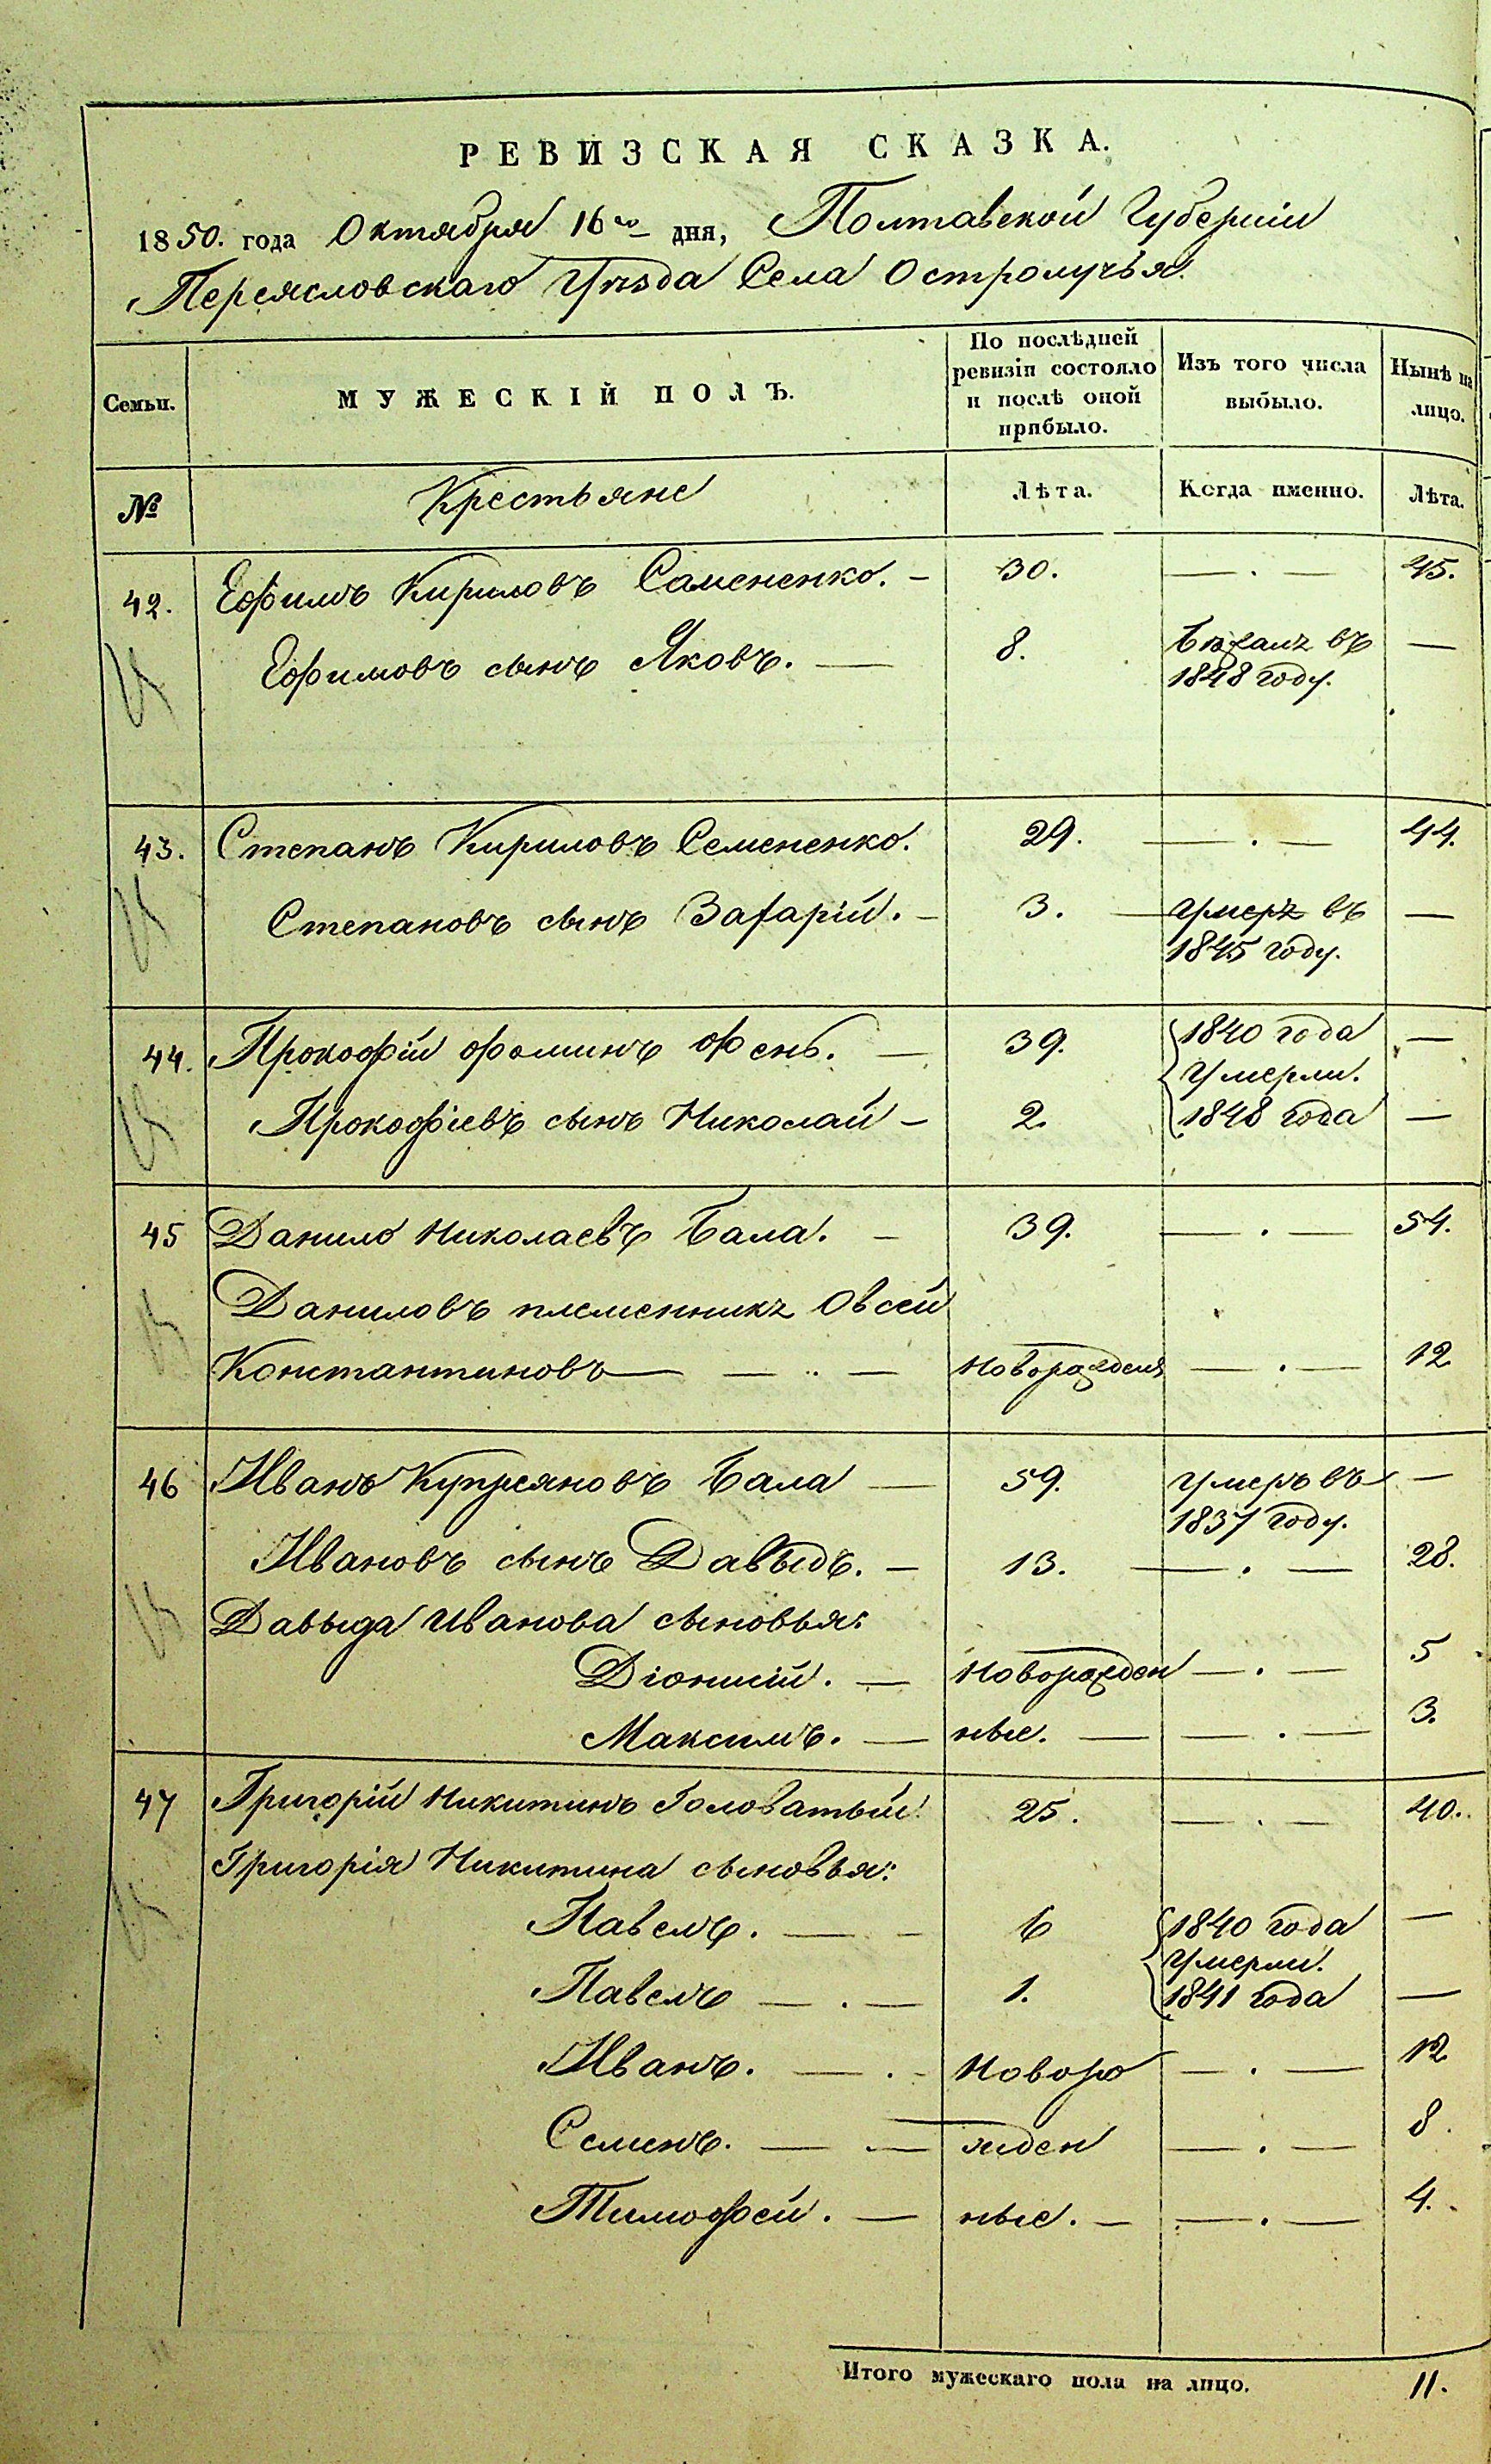 РЕВИЗСКАЯ СКАЗКА.
1850. года Октября 16го дня, Полтавской Губерніи
Переясловскаго Уѣзда Села Остролучья.
Семьи. МУЖЕСКІЙ ПОЛЪ. По послѣдней ревизіи состояло и послѣ оной прибыло. Изъ того числа выбыло. Нынѣ на лицо.
№ Крестьяне Лѣта. Когда именно. Лѣта.
42. Ефимъ Кириловъ Самененко. — 30. — . — 45.
Ефимовъ сынъ Яковъ. — 8. Бѣжалъ въ —
1848 году.
43. Степанъ Кириловъ Семененко. 29. — . — 44.
Степановъ сынъ Захарій. — 3. — Умеръ въ —
1845 году.
44. Прокофій Фоминъ Фень. — 39. 1840 года —
Умерли.
Прокофіевъ сынъ Николай — 2. 1848 года —
45 Данило Николаевъ Бала. — 39. — . — 54.
Даниловъ племенникъ Овсей
Константиновъ — — .. — Новорожден — . — 12
46 Иванъ Купреяновъ Бала — 59. Умеръ въ —
1837 году.
Ивановъ сынъ Давыдъ. — 13. — . — 28.
Давыда Иванова сыновья:
Діонисій. — Новорожден — . — 5
Максимъ. — ные. — — . — 3.
47 Григорій Никитинъ Головатый. 25. — . — 40.
Григорія Никитина сыновья:
Павелъ. — — 6 1840 года —
Умерли.
Павелъ — . — 1. 1841 года —
Иванъ. — . - Новоро — . — 12
Семенъ. — — жден — . — 8.
Тимофей. — ные. — — . — 4.
Итого мужескаго пола на лицо. 11.